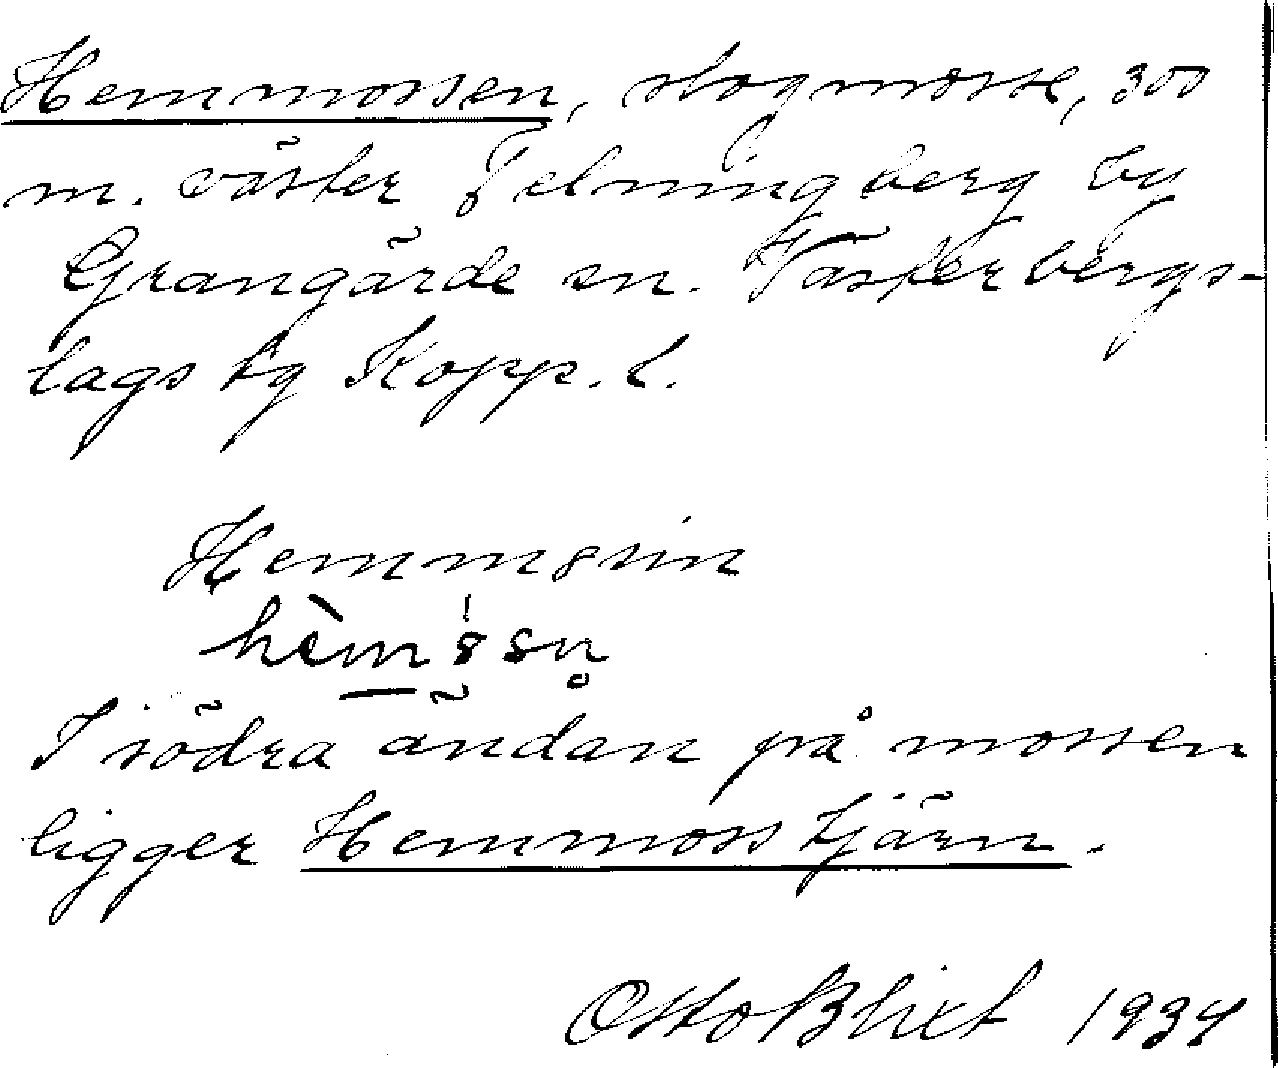 Hemmossen, slogmosse, 300
m. väster Jelningberg by
Grangärde sn. Västerbergs-
lags tg Kopp. l.
Hemm8sin
hèm8sn
I södra ändan på mossen
ligger Hemmosstjärn.
Otto Blixt 1934